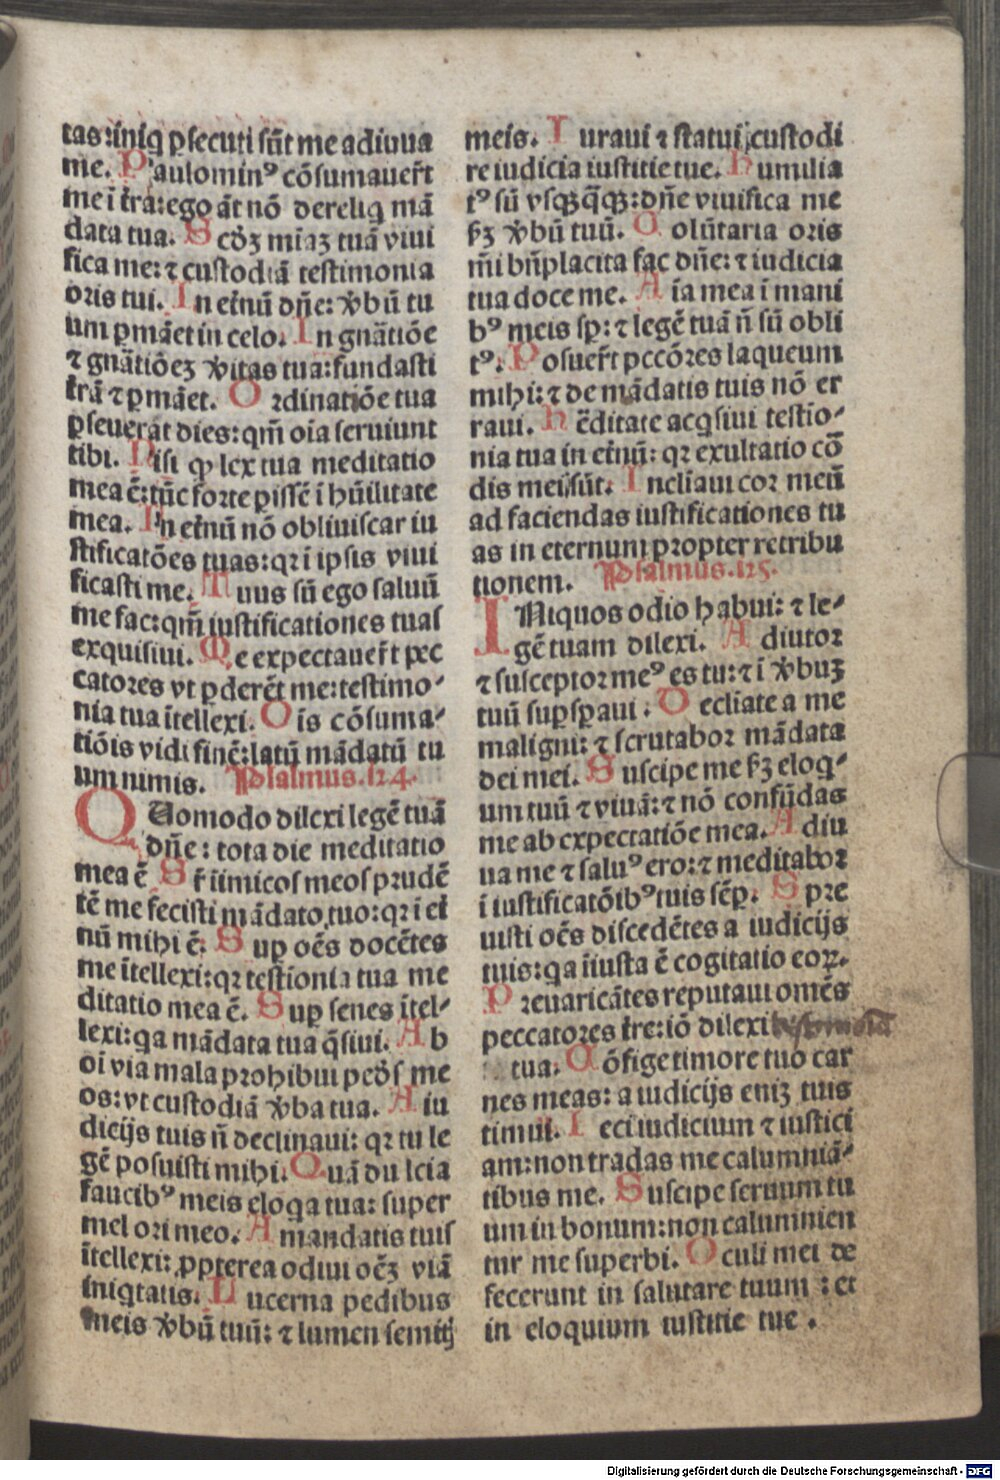 tas:iniq ꝑsecuti sūt me adiuua
me. Paulomin⁹ cōsumauer̄t
me ī tr̄a:ego āt nō dereliq mā
data tua. Scd̄ꝫ miāꝫ tuā viui
fica me:⁊ custodiā testimonia
oris tui. In etnū dn̄e: v̄bū tu
um ꝑmāet in celo. In gnātiōe
⁊ gnātiōeꝫ v̄itas tua:fundasti
tr̄ā ⁊ ꝑmāet. Ordinatiōe tua
ꝑseuerāt dies:qm̄ oīa seruiunt
tibi. Nisi ꝙ lex tua meditatio
mea ē:tūc forte ꝑissē ī hūilitate
mea. In etnū nō obliuiscar iu
stificatōes tuas:qꝛ ī ipsis viui
ficasti me. Tuus sū ego saluū
me fac:qm̄ iustificationes tuas
exquisiui. Me expectauer̄t pec
catores vt ꝑderēt me:testimo⸗
nia tua ītellexi. Ois cōsuma⸗
tiōis vidi finē:latū mādatū tu
um nimis. Psalmus.124.
QUomodo dilexi legē tuā
dn̄e: tota die meditatio
mea ē Sr̄ iimicos meos prudē
tē me fecisti mādato tuo:qꝛ ī et
nū mihi ē. Suꝑ oēs docētes
me ītellexi:qꝛ testionia tua me
ditatio mea ē. Suꝑ senes ītel⸗
lexi:qa mādata tua q̄siui. Ab
oī via mala prohibui ped̄s me
os:vt custodiā v̄ba tua. A iu
dicijs tuis n̄ declinaui: qꝛ tu le
gē posuisti mihi. Quā dulcia
faucib⁹ meis eloqa tua: super
mel ori meo. A mandatis tuis
ītellexi: ꝓpterea odiui oēꝫ viā
iniqtatis. Lucerna pedibus
meis v̄bū tuū: ⁊ lumen semitꝭ
meis. Iuraui ⁊ statui custodi
re iudicia iustitie tue. Humilia
t⁹ sū vsqꝫq̄qꝫ:dn̄e viuifica me
ẞꝫ v̄bū tuū. Uolūtaria oris
m̄i bn̄placita fac dn̄e: ⁊ iudicia
tua doce me. Aīa mea ī mani
b⁹ meis sꝑ: ⁊ legē tuā n̄ sū obli
t⁹. Posuer̄t pccōres laqueum
mihi: ⁊ de mādatis tuis nō er
raui. Hēditate acqsiui testio⸗
nia tua in etnū: qꝛ exultatio cō
dis mei sūt. Incliaui cor meū
ad faciendas iustificationes tu
as in eternum propter retribu
tionem. Psalmus.125.
INiquos odio habui: ⁊ le⸗
gē tuam dilexi. Adiutor
⁊ susceptor me⁹ es tu:⁊ ī v̄buꝫ
tuū suꝑsꝑaui. Decliate a me
maligni: ⁊ scrutabor mādata
dei mei. Suscipe me ẞꝫ eloq⸗
um tuū ⁊ viuā: ⁊ nō confūdas
me ab expectatiōe mea. Adiu
ua me ⁊ salu⁹ ero:⁊ meditabor
ī iustificatōib⁹ tuis sēꝑ. Spre
uisti oēs discedētes a iudicijs
tuis:qa īiusta ē cogitatio eoꝝ.
Preuaricātes reputaui omēs
peccatores tr̄e:iō dilexi testimonia
tua. Cōfige timore tuo car
nes meas: a iudicijs eniꝫ tuis
timui. Feci iudicium ⁊ iustici
am:non tradas me calumniā⸗
tibus me. Suscipe seruum tu
um in bonum:non calumnien
tur me superbi. Oculi mei de
fecerunt in salutare tuum : et
in eloquium iustitie tue.
Digitalisierung gefördert durch die Deutsche Forschungsgemeinschaft - DFG